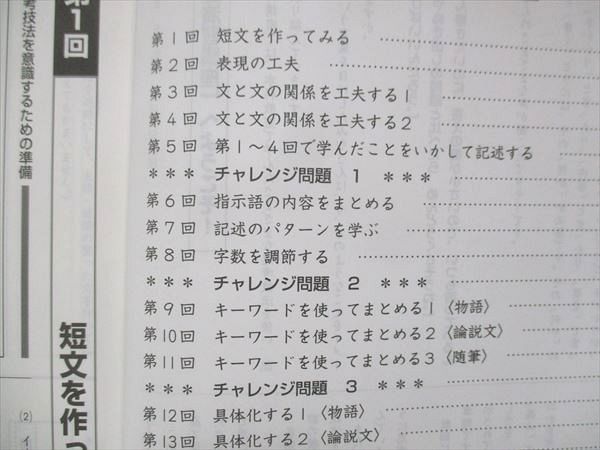 第1回 短文を作ってみる
第2回 表現の工夫
第3回 文と文の関係を工夫する1
第4回 文と文の関係を工夫する2
第5回 第1～4回で学んだことをいかして記述する
＊＊＊ チャレンジ問題 1 ＊＊＊
第6回 指示語の内容をまとめる
第7回 記述のパターンを学ぶ
第8回 字数を調節する
＊＊＊ チャレンジ問題 2 ＊＊＊
第9回 キーワードを使ってまとめる1〈物語〉
第10回 キーワードを使ってまとめる2〈論説文〉
第11回 キーワードを使ってまとめる3〈随筆〉
＊＊＊ チャレンジ問題 3 ＊＊＊
第12回 具体化する1〈物語〉
第13回 具体化する2〈論説文〉
第1回
短文を作っ
考技法を意識するための準備
(2) イ